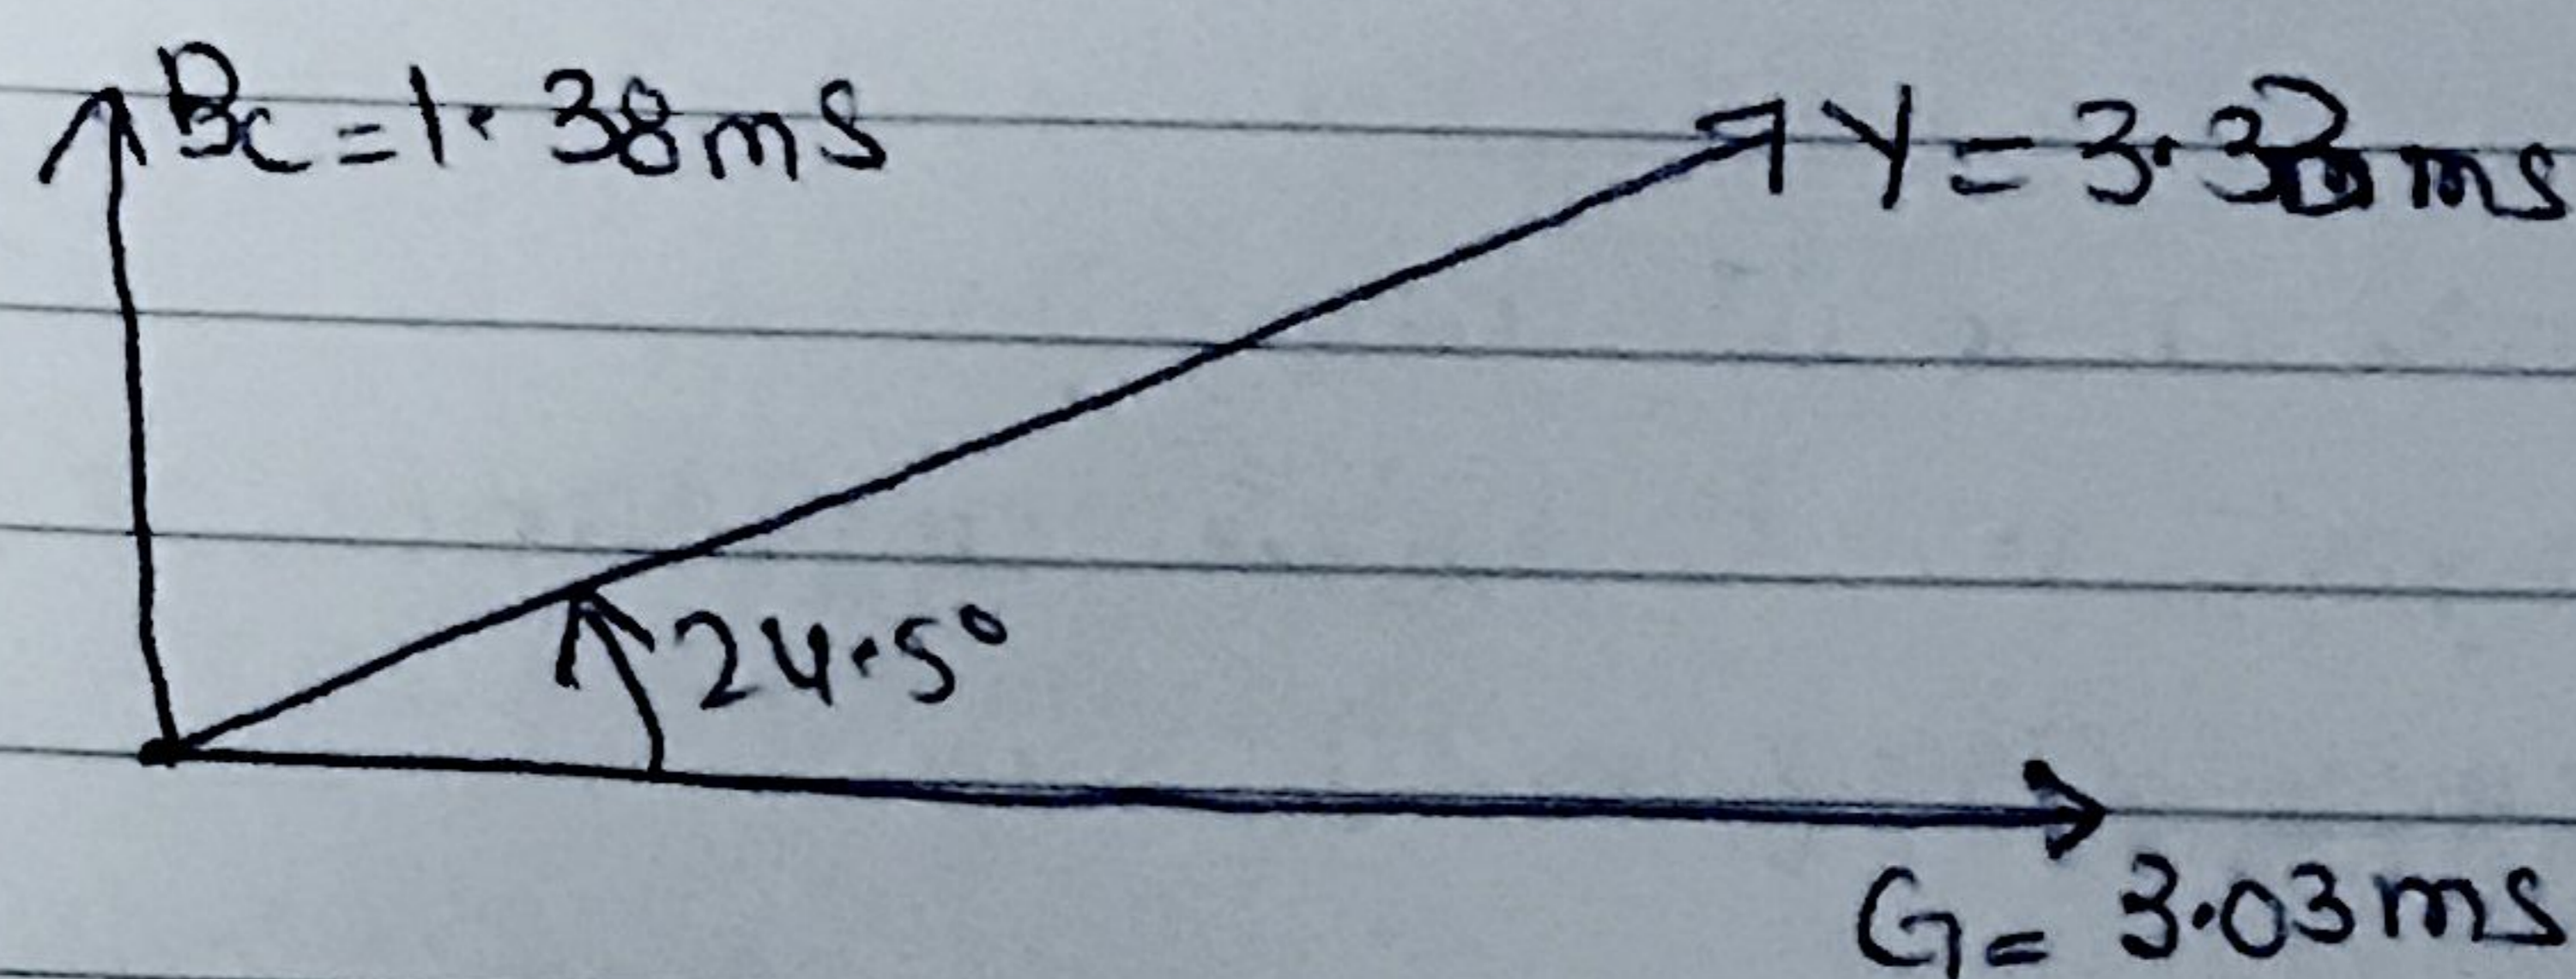 Bc = 1.38mS
Y = 3.33 mS
24.5°
G = 3.03 mS